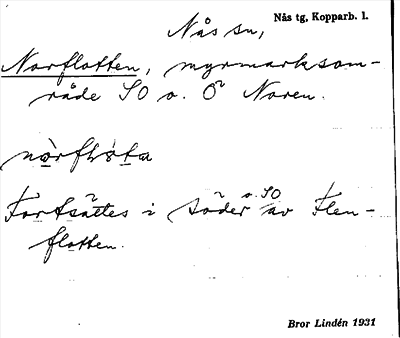 Nås sn, Nås tg, Kopparb. l.
Norflotten, myrmarksom-
råde SO o. Ö Noren.
Fortsättes i söder o. SO av Flen-
flotten.
Bror Lindén 1931